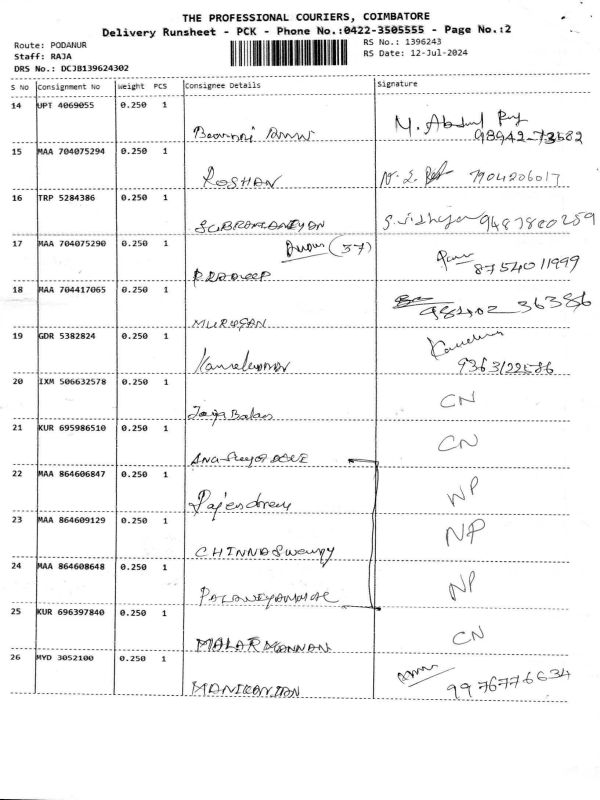 THE PROFESSIONAL COURIERS, COIMBATORE
Delivery Runsheet - PCK - Phone No.:0422-3505555 - Page No.:2
Route: PODANUR
Staff: RAJA
DRS No.: DCJB139624302
RS No.: 1396243
RS Date: 12-Jul-2024
S No Consignment No Weight PCS Consignee Details Signature
14 UPT 4069055 0.250 1
M. Abdul
98942-73582
15 MAA 704075294 0.250 1
ROSHAN 7904206017
16 TRP 5284386 0.250 1
SUBRAMANIYAN 9487800259
17 MAA 704075290 0.250 1
(37)
PRADEEP 8754011999
18 MAA 704417065 0.250 1
MURUGAN 36386
19 GDR 5382824 0.250 1
9363122586
20 IXM 506632578 0.250 1
CN
Jaya Balan
21 KUR 695986510 0.250 1
CN
22 MAA 864606847 0.250 1
NP
Rajendren
23 MAA 864609129 0.250 1
NP
CHINNASwamy
24 MAA 864608648 0.250 1
NP
25 KUR 696397840 0.250 1
CN
MALARMANNAN
26 MYD 3052100 0.250 1
9976776634
MANIKANTAN